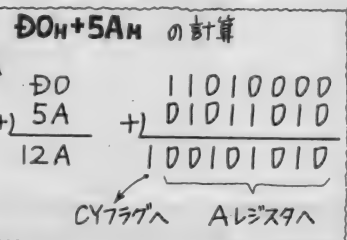 D0H+5AH の計算
D0 11010000
+) 5A +) 01011010
12A 100101010
CYフラグへ Aレジスタへ